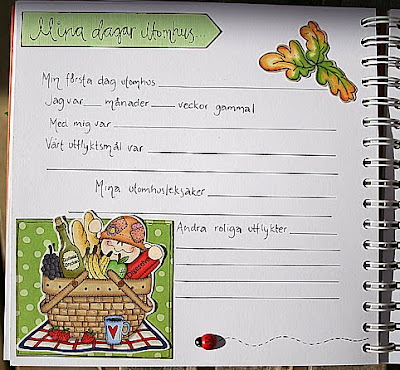 Mina dagar utomhus...
Min första dag utomhus
Jag var månader veckor gammal
Med mig var
Vårt utflyktsmål var
Mina utomhusleksaker
Andra roliga utflykter